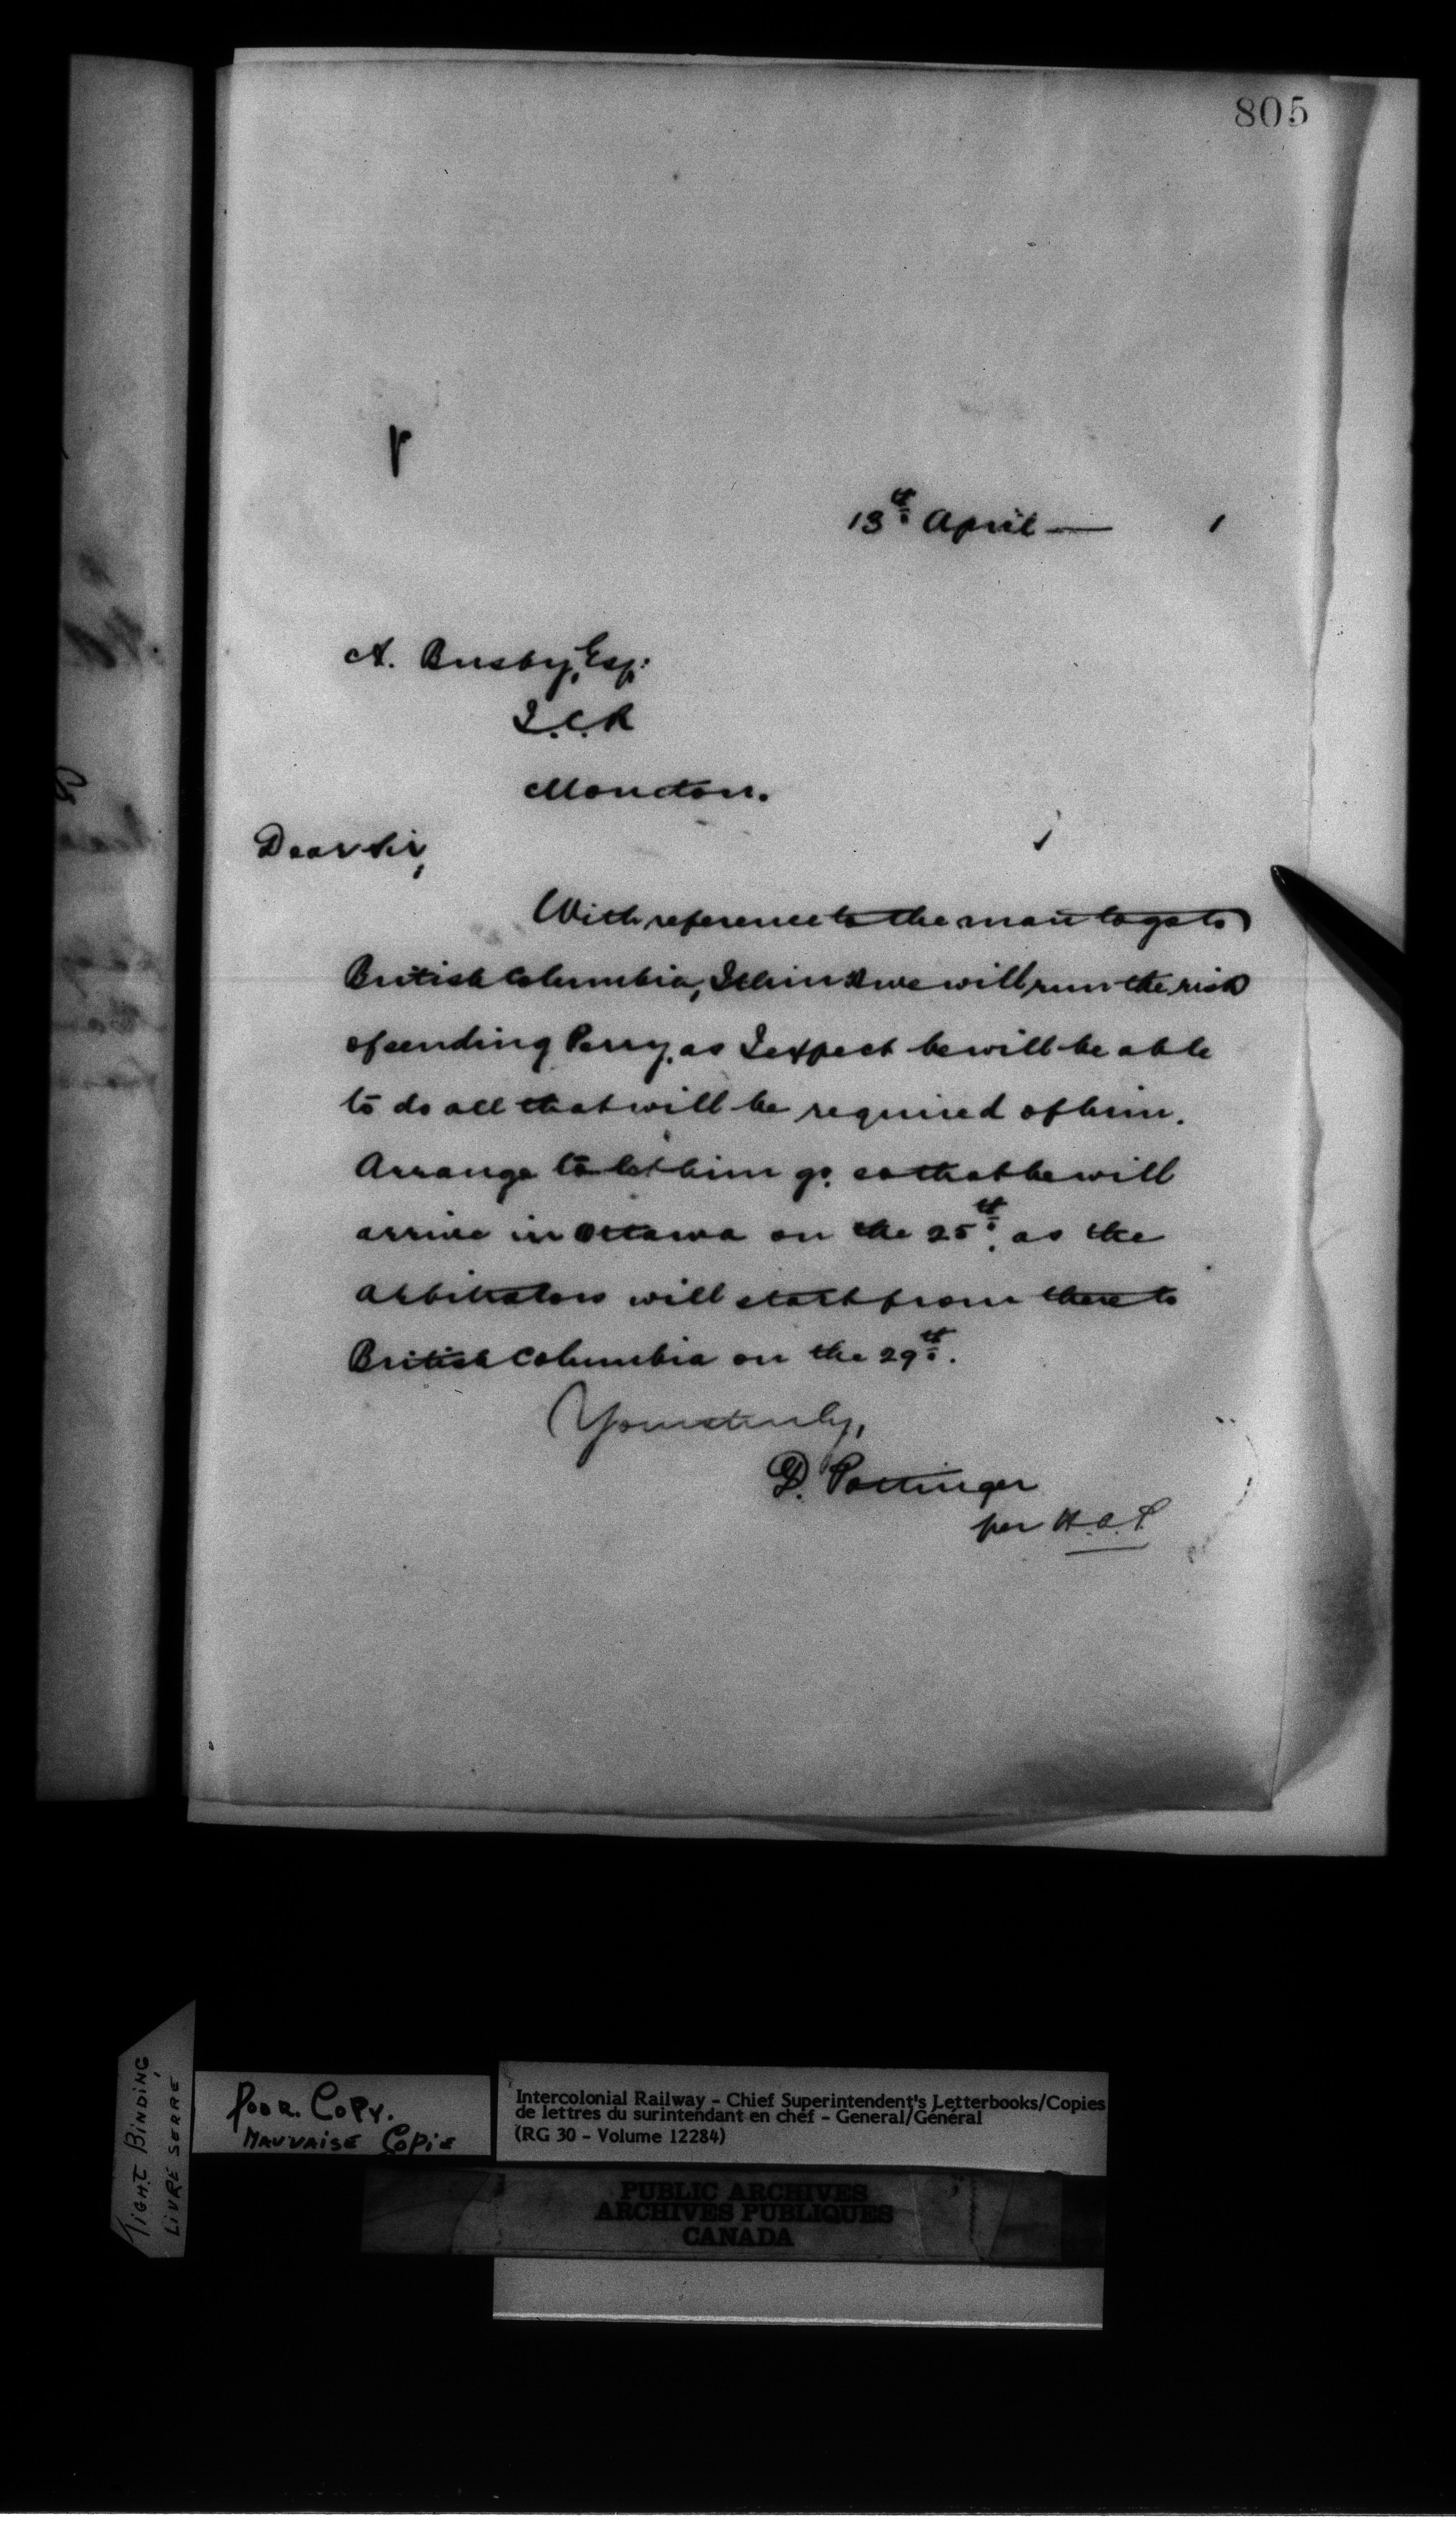 805
13th April — 1
A. Busby, Esq:
I.C.R
Moncton.
Dear Sir,
With reference to the man to go to
British Columbia, I think we will run the risk
of sending Perry, as I expect he will be able
to do all that will be required of him.
Arrange to let him go, so that he will
arrive in Ottawa on the 25th, as the
Arbitrators will start from there to
British Columbia on the 29th.
Yours truly,
D. Pottinger
per H.A.P
TIGHT BINDING
LIVRE SERRE
POOR. COPY.
MAUVAISE COPIE
Intercolonial Railway - Chief Superintendent's Letterbooks/Copies
de lettres du surintendant en chef - General/Général
(RG 30 - Volume 12284)
PUBLIC ARCHIVES
ARCHIVES PUBLIQUES
CANADA